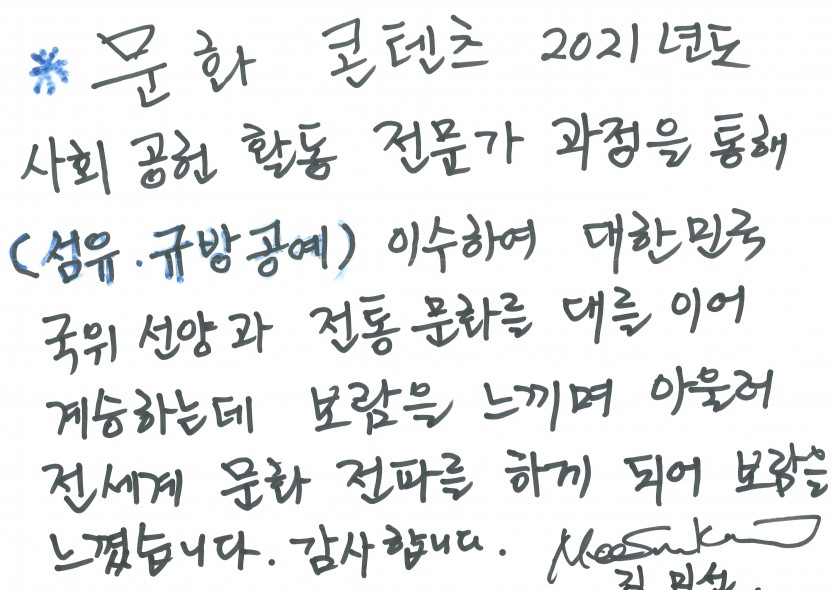 * 문화 콘텐츠 2021년도
사회 공헌 활동 전문가 과정을 통해
(섬유.규방공예) 이수하여 대한민국
국위 선양과 전통문화를 대를 이어
계승하는데 보람을 느끼며 아울러
전세계 문화 전파를 하게 되어 보람을
느꼈습니다. 감사합니다.
김